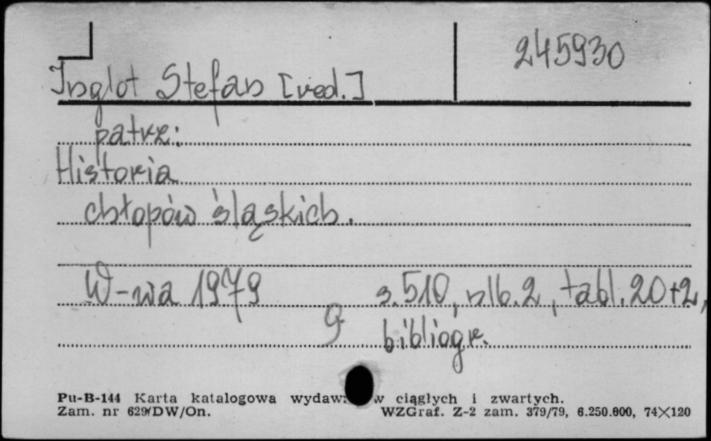 245930
Inglot Stefan [red.]
patrz:
Historia
chłopów śląskich.
W-wa 1979 s. 510, nlb. 2, tabl. 20+2,
bibliogr.
Pu-B-144 Karta katalogowa ciągłych i zwartych.
Zam. nr 629/DW/On. WZGraf. Z-2 zam. 379/79, 6.250.000, 74×120